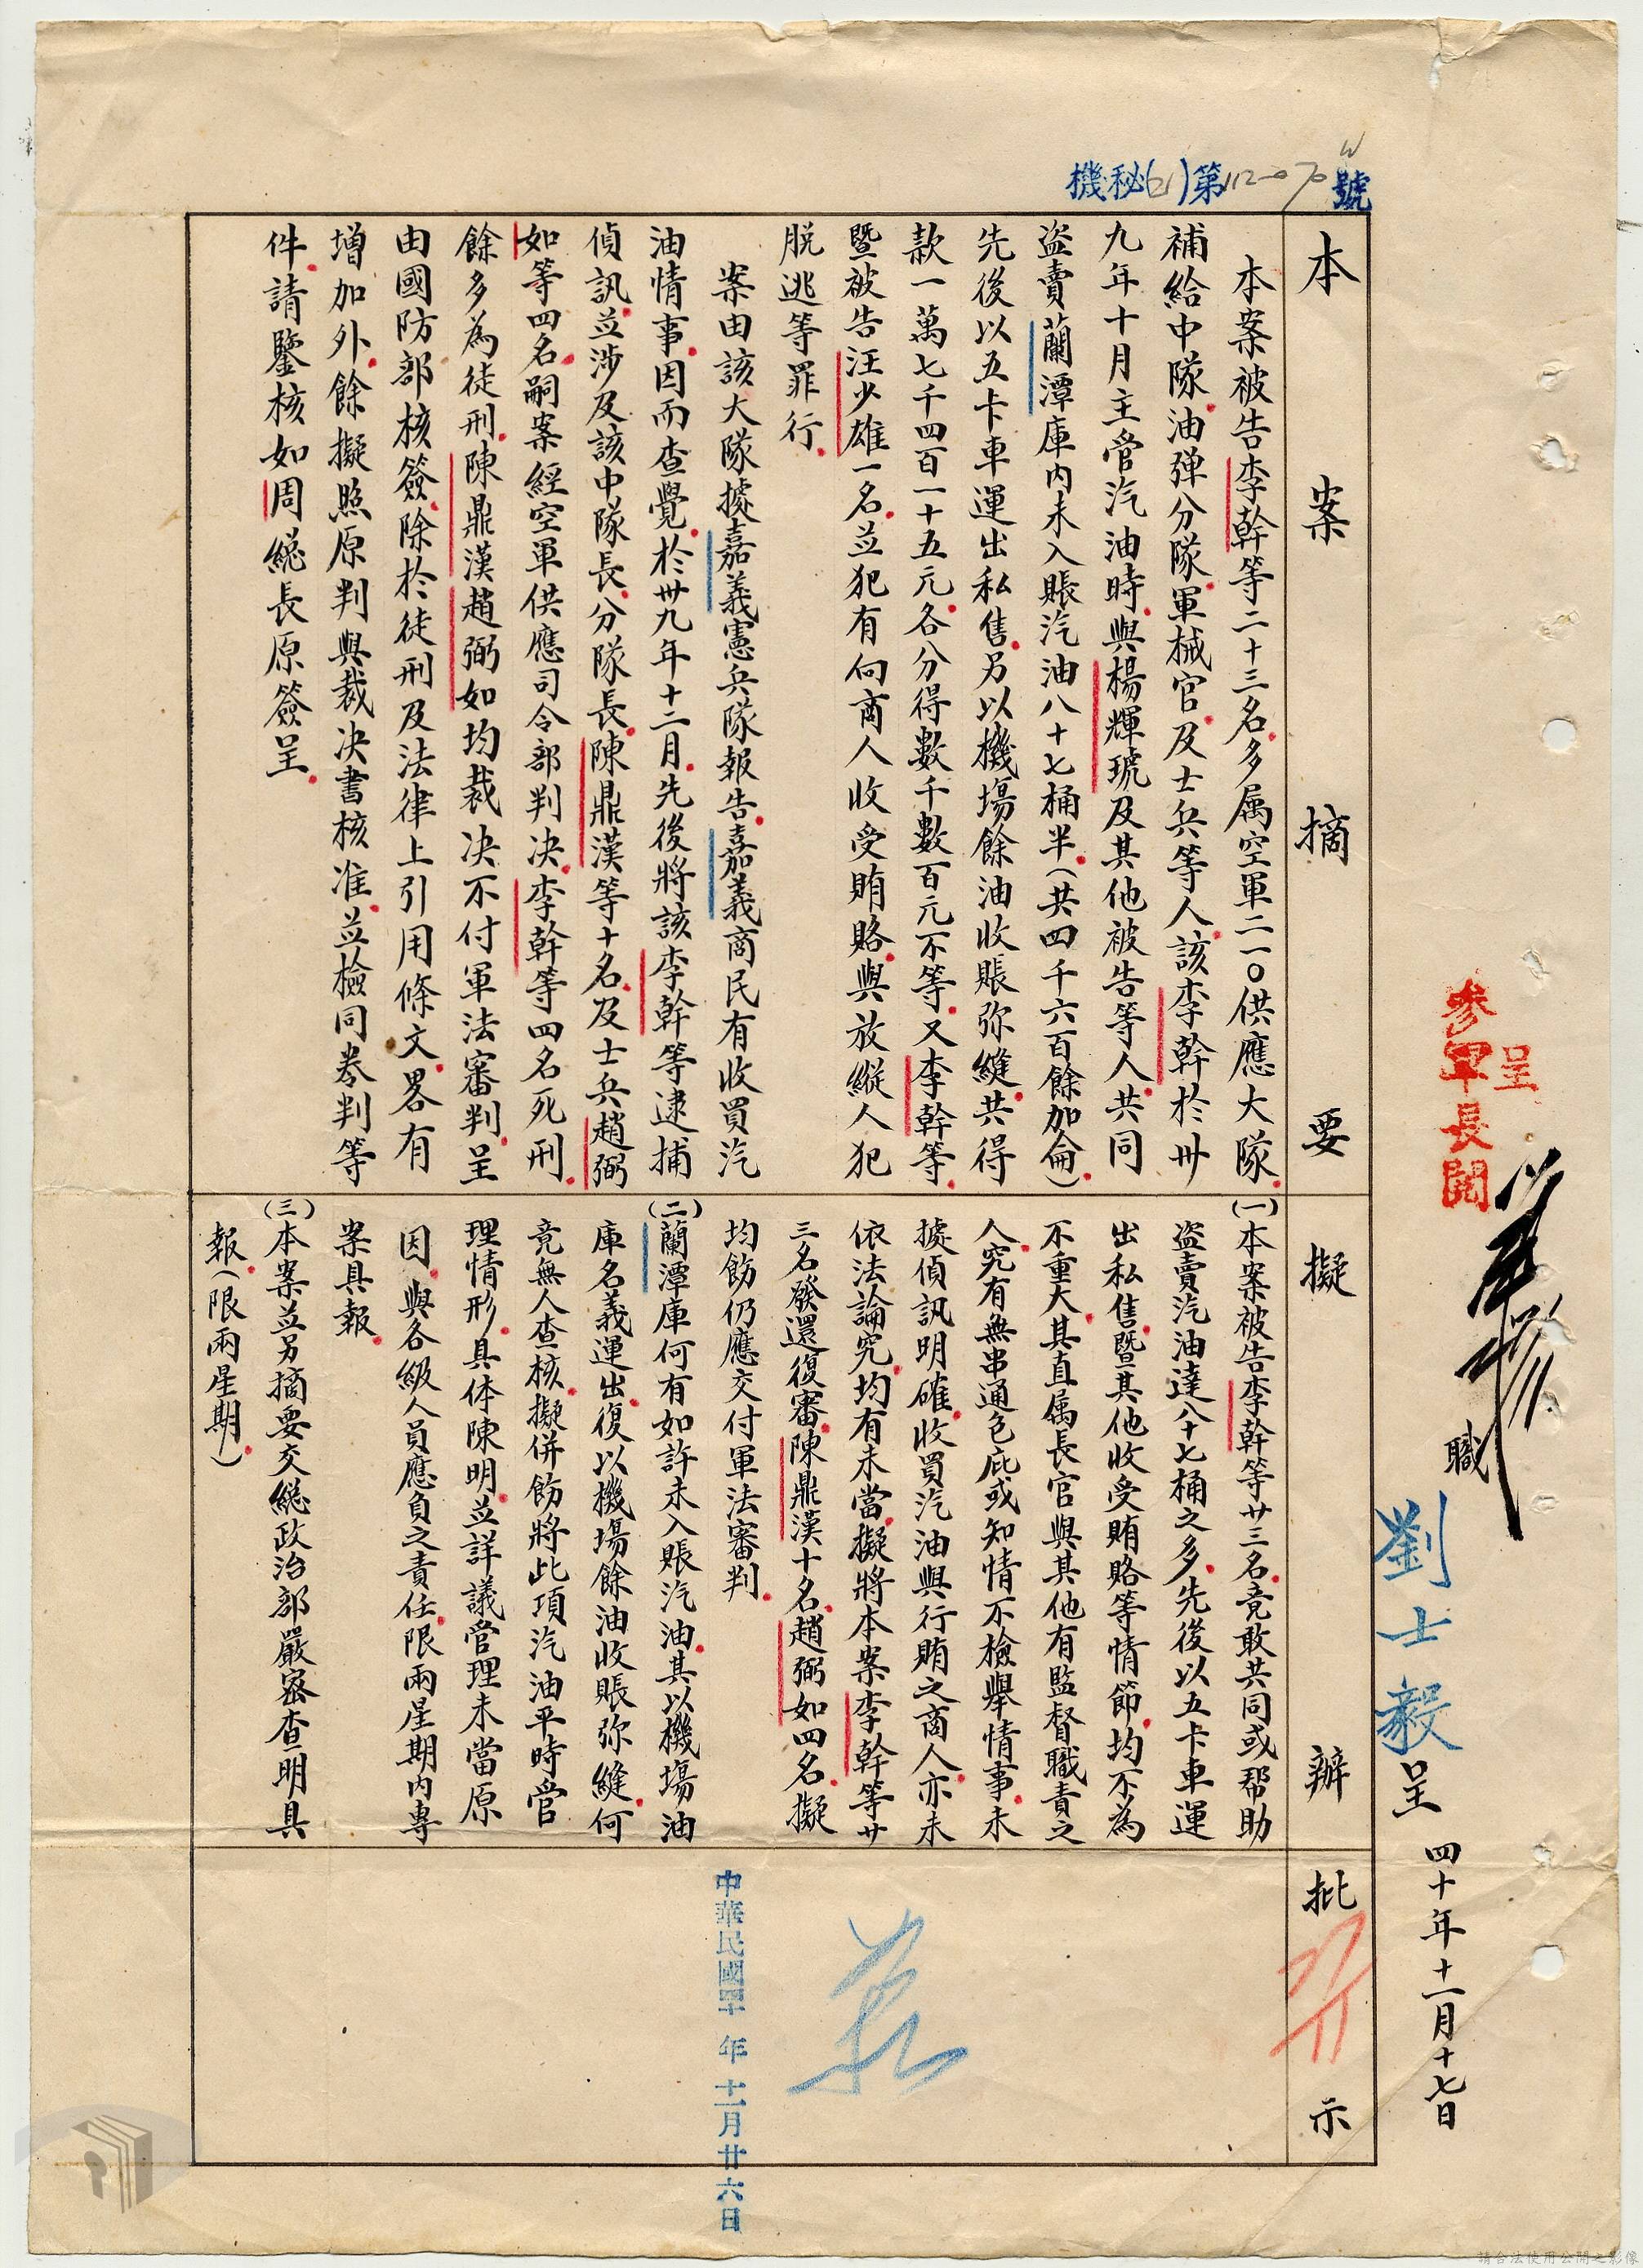 機秘(21)第112070號
呈
參軍長閱
職劉士毅呈 四十年十一月十七日
本案摘要
本案被告李幹等二十三名多属空軍二一〇供應大隊
補給中隊油弹分隊軍械官及士兵等人該李幹於卅
九年十月主管汽油時與楊輝琥及其他被告等人共同
盜賣蘭潭庫内未入賬汽油八十七桶半(共四千六百餘加侖)
先後以五卡車運出私售另以機場餘油收賬弥縫共得
款一萬七千四百一十五元各分得數千數百元不等又李幹等
暨被告汪少雄一名並犯有向商人收受賄賂與放縱人犯
脱逃等罪行
案由該大隊據嘉義憲兵隊報告嘉義商民有收買汽
油情事因而查覺於卅九年十二月先後將該李幹等逮捕
偵訊並涉及該中隊長分隊長陳鼎漢等十名及士兵趙弼
如等四名嗣案經空軍供應司令部判决李幹等四名死刑
餘多為徒刑陳鼎漢趙弼如均裁决不付軍法審判呈
由國防部核簽除於徒刑及法律上引用條文畧有
增加外餘擬照原判與裁决書核准並檢同卷判等
件請鑒核如周總長原簽呈
擬辦
(一)本案被告李幹等廿三名竟敢共同或帮助
盜賣汽油達八十七桶之多先後以五卡車運
出私售暨其他收受賄賂等情節均不為
不重大其直属長官與其他有監督職責之
人究有無串通包庇或知情不檢舉情事未
據偵訊明確收買汽油與行賄之商人亦未
依法論究均有未當擬將本案李幹等廿
三名發還復審陳鼎漢十名趙弼如四名擬
均飭仍應交付軍法審判
(二)蘭潭庫何有如許未入賬汽油其以機場油
庫名義運出復以機場餘油收賬弥縫何
竟無人查核擬併飭將此項汽油平時管
理情形具体陳明並詳議管理未當原
因與各級人員應負之責任限兩星期内專
案具報
(三)本案並另摘要交總政治部嚴密查明具
報(限兩星期)
批示
中華民國四十年十一月廿六日
請合法使用公開之影像